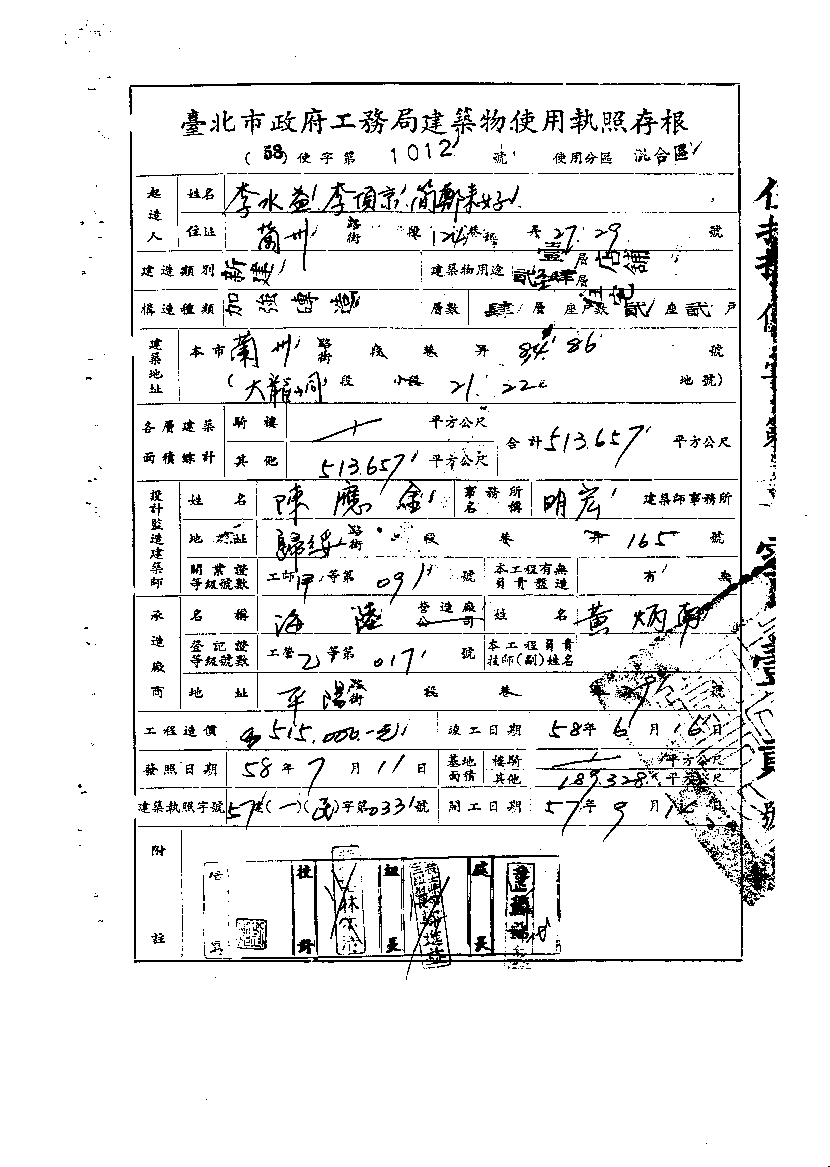 臺北市政府工務局建築物使用執照存根
(58)使字第 1012 號 使用分區 混合區
起造人 姓名 李水益 李項京 簡鄭束好
住址 蘭州 路街 段 124巷 弄 27.29 號
建造類別 新建 建築物用途 壹層店舖 貳至肆層住宅
構造種類 加強磚造 層數 肆層 座戶數 貳座貳戶
建築地址 本市 蘭州 路街 段 巷 弄 84.86 號
(大龍峒段 小段 21.22 地號)
各層建築面積綜計 騎樓 平方公尺
其他 513.657 平方公尺 合計 513.657 平方公尺
設計監造建築師 姓名 陳應金 事務所名稱 明宏 建築師事務所
地址 歸綏 路街 段 巷 弄 165 號
開業證等級號數 工師甲等第 091 號 本工程有無負責監造 有 無
承造廠商 名稱 海陸 營造廠公司 姓名 黃炳
登記證等級號數 工營乙等第 017 號 本工程負責技師(副)姓名
地址 平陽 路街 段 巷 號
工程造價 515,000.-元 竣工日期 58年6月16日
發照日期 58年7月11日 基地面積 騎樓 平方公尺
其他 189.328 平方公尺
建築執照字號 57建(一)(民)字第0331號 開工日期 57年9月 日
附註